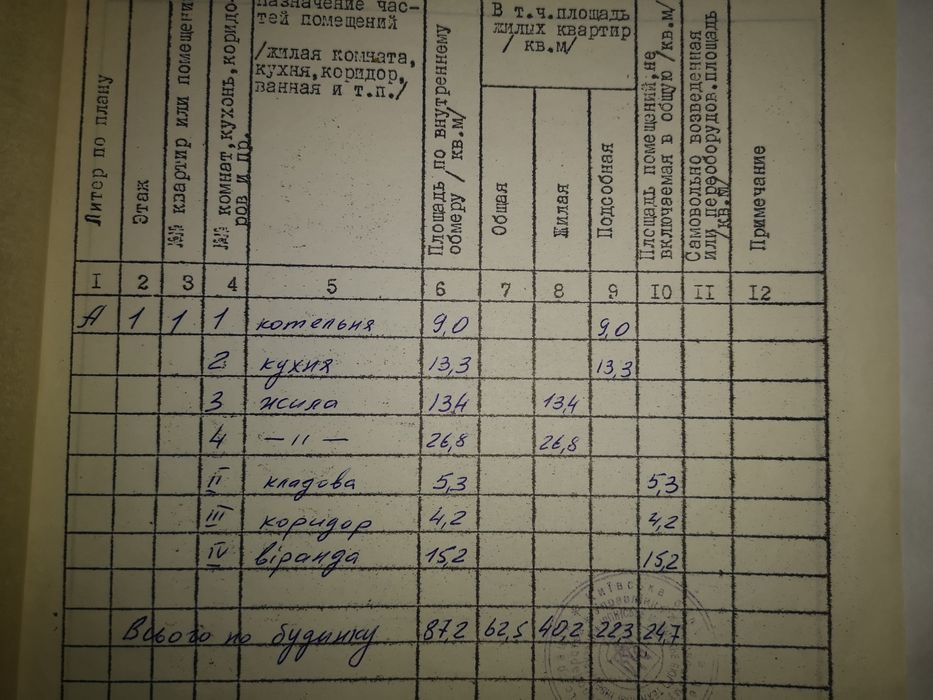 Литер по плану
Этаж
№№ квартир или помещени
№№ комнат, кухонь, коридо-
ров и пр.
назначение час-
тей помещений
/жилая комната,
кухня, коридор,
ванная и т.п./
Площадь по внутреннему
обмеру / кв.м/
В т.ч.площадь
жилых квартир
/ кв.м/
Общая
Жилая
Подсобная
Площадь помещений, не
включаемая в общую /кв.м/
Самовольно возведенная
или переоборудов.площадь
/кв.м/
Примечание
I 2 3 4 5 6 7 8 9 10 II 12
А 1 1 1 котельня 9,0 9,0
2 кухня 13,3 13,3
3 жила 13,4 13,4
4 — 11 — 26,8 26,8
II кладова 5,3 5,3
III коридор 4,2 4,2
IV віранда 15,2 15,2
Всього по будинку 87,2 62,5 40,2 22,3 24,7
Київська